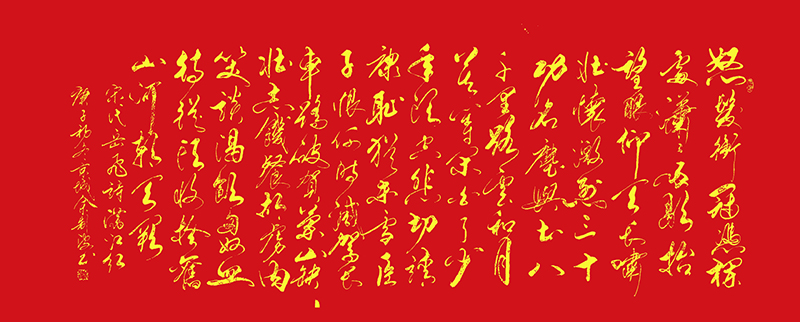 怒髮衝冠憑欄
處瀟々雨歇抬
望眼仰天長嘯
壯懷激烈三十
功名塵與土八
千里路雲和月
莫等閒白了少
年頭空悲切靖
康恥猶未雪臣
子恨何時滅駕長
車踏破賀蘭山缺
壯志饑餐胡虜肉
笑談渴飲匈奴血
待從頭收拾舊
山河朝天闕
宋代岳飛詩滿江紅
庚子秋於京城